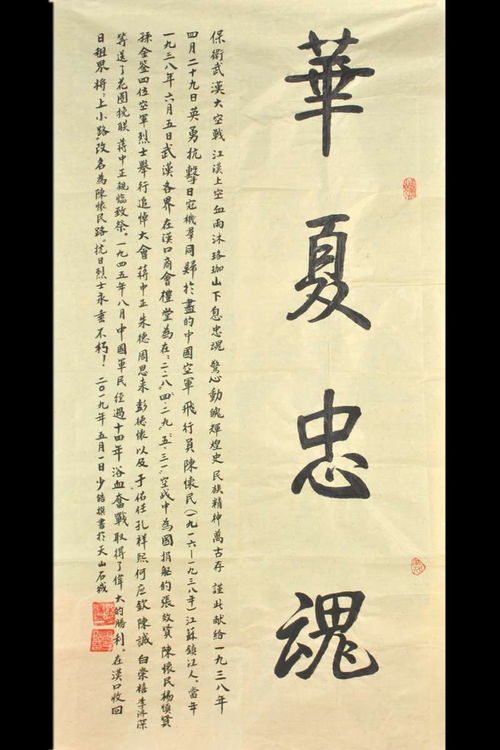 華夏忠魂
保衛武漢大空戰 江漢上空血雨沐 珞珈山下息忠魂 驚心動魄輝煌史 民族精神萬古存 謹此献给一九三八年
四月二十九日英勇抗擊日寇機羣同歸於盡的中國空軍飛行員陳懷民(一九一六一一九三八年)江蘇鎮江人。當年
一九三八年六月五日武漢各界在漢口商會禮堂為在"二·一八""四·二九""五·三一"空战中為國捐躯的張效賢陳懷民楊慎賢
孫金鉴四位空軍烈士舉行追悼大會 蔣中正 朱德 周恩来 彭德懷以及于佑任孔祥熙何应欽陳誠白崇禧李济深
等送了花圈挽联 蔣中正親臨致祭。一九四五年八月中國軍民 經過十四年浴血奮戰 取得了偉大的勝利。在漢口收回
日租界将:上小路改名為陳懷民路。抗日烈士永垂不朽! 二〇一九年五月一日少皓撰書於天山石城